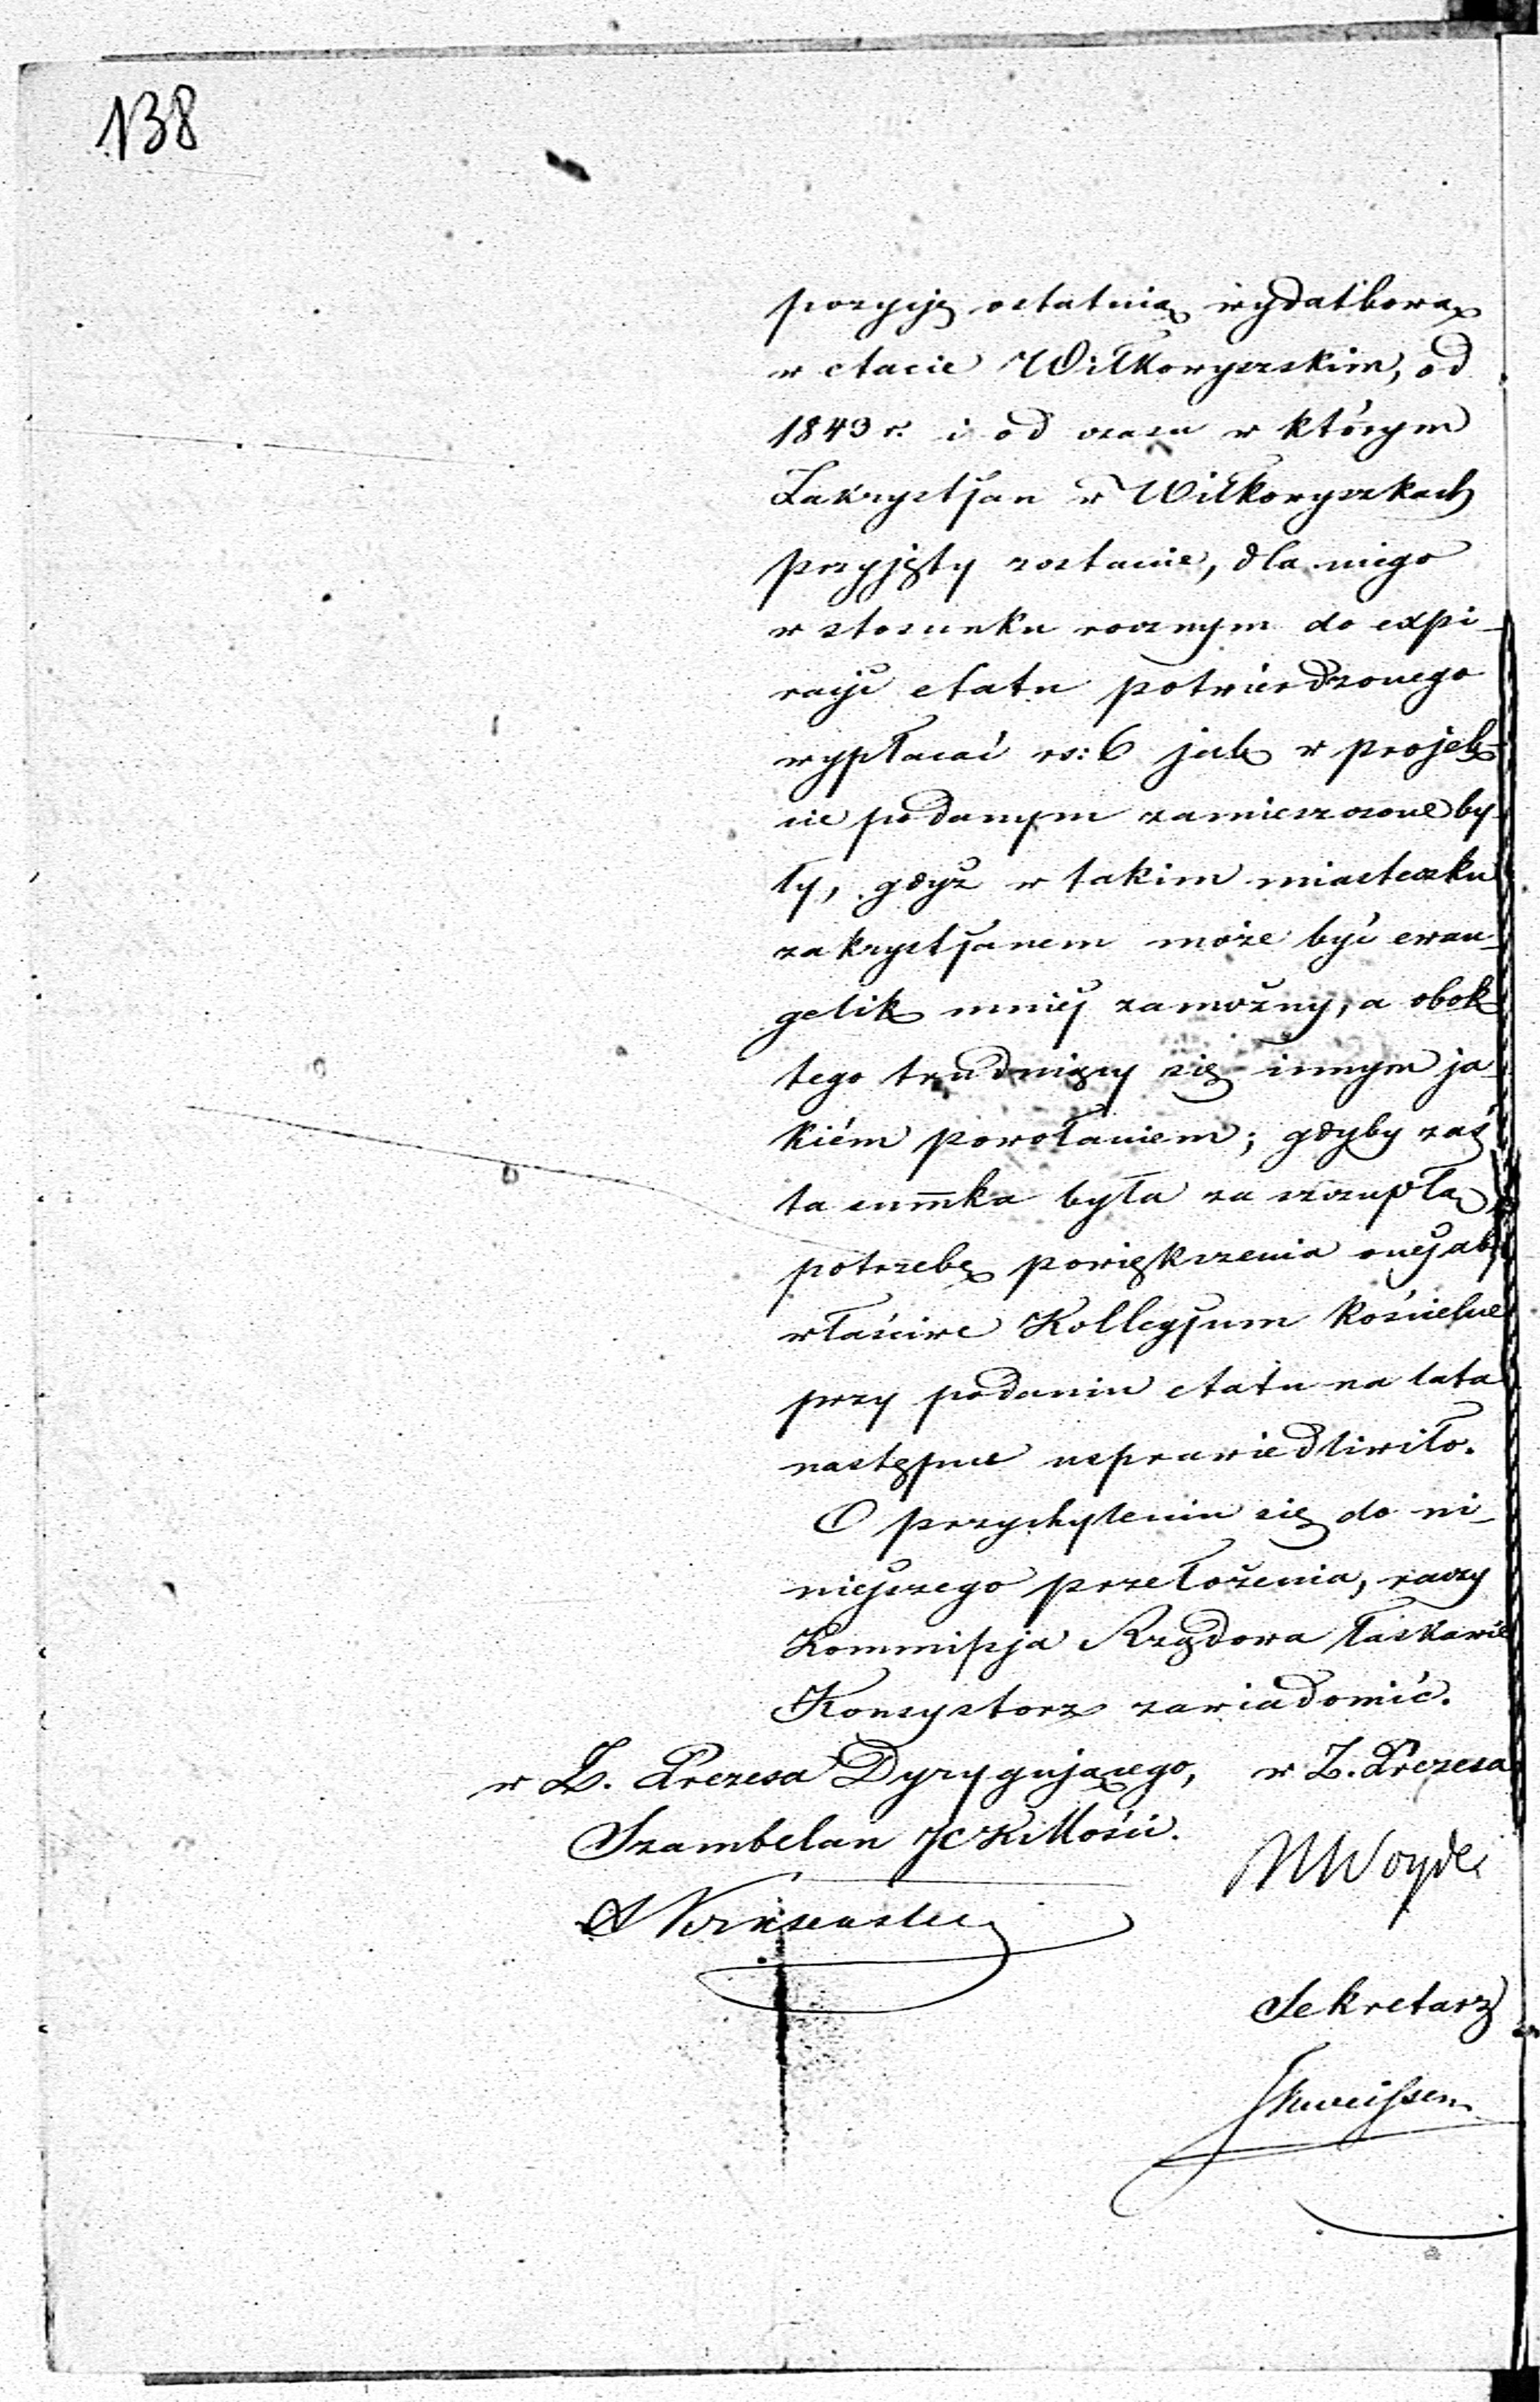 138
pozycję ostatnią wydatkową
w etacie Wiłkowyszskim, od
1843 r. i od czasu w którym
Zakrystjan w Wiłkowyszkach
przyjęty zostanie, dla niego
w stosunku rocznym do expi-
racji etatu potwierdzonego
wypłacać rs: 6 jak w projek-
cie podanym zamieszczone by-
ły, gdyż w takim miasteczku
zakrystjanem może być ewan-
gelik mniej zamożny, a obok
tego trudniący się innym ja-
kiém powołaniem; gdyby zaś
ta summka była za szczupłą,
potrzebę powiększenia onej aby
właściwe Kollegjum Kościelne
przy podaniu etatu na lata
następne usprawiedliwiło.
O przychyleniu się do ni-
niejszego przełożenia, raczy
Kommissja Rządowa łaskawie
Konsystorz zawiadomić.
w Z. Prezesa Dyrygującego, w Z. Prezesa
Szambelan JCKMości.
Woyde
Sekretarz